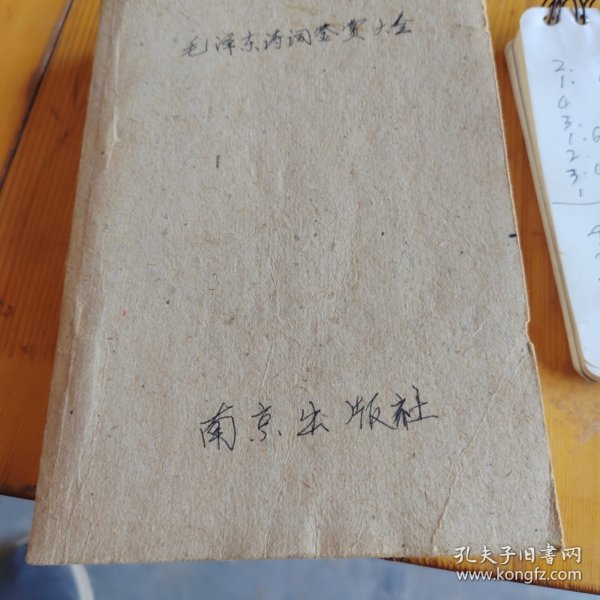 毛泽东诗词鉴赏大全
2.
1.
4
3.
1.
2.
3.
1
南京出版社
孔夫子旧书网
www.kongfz.com